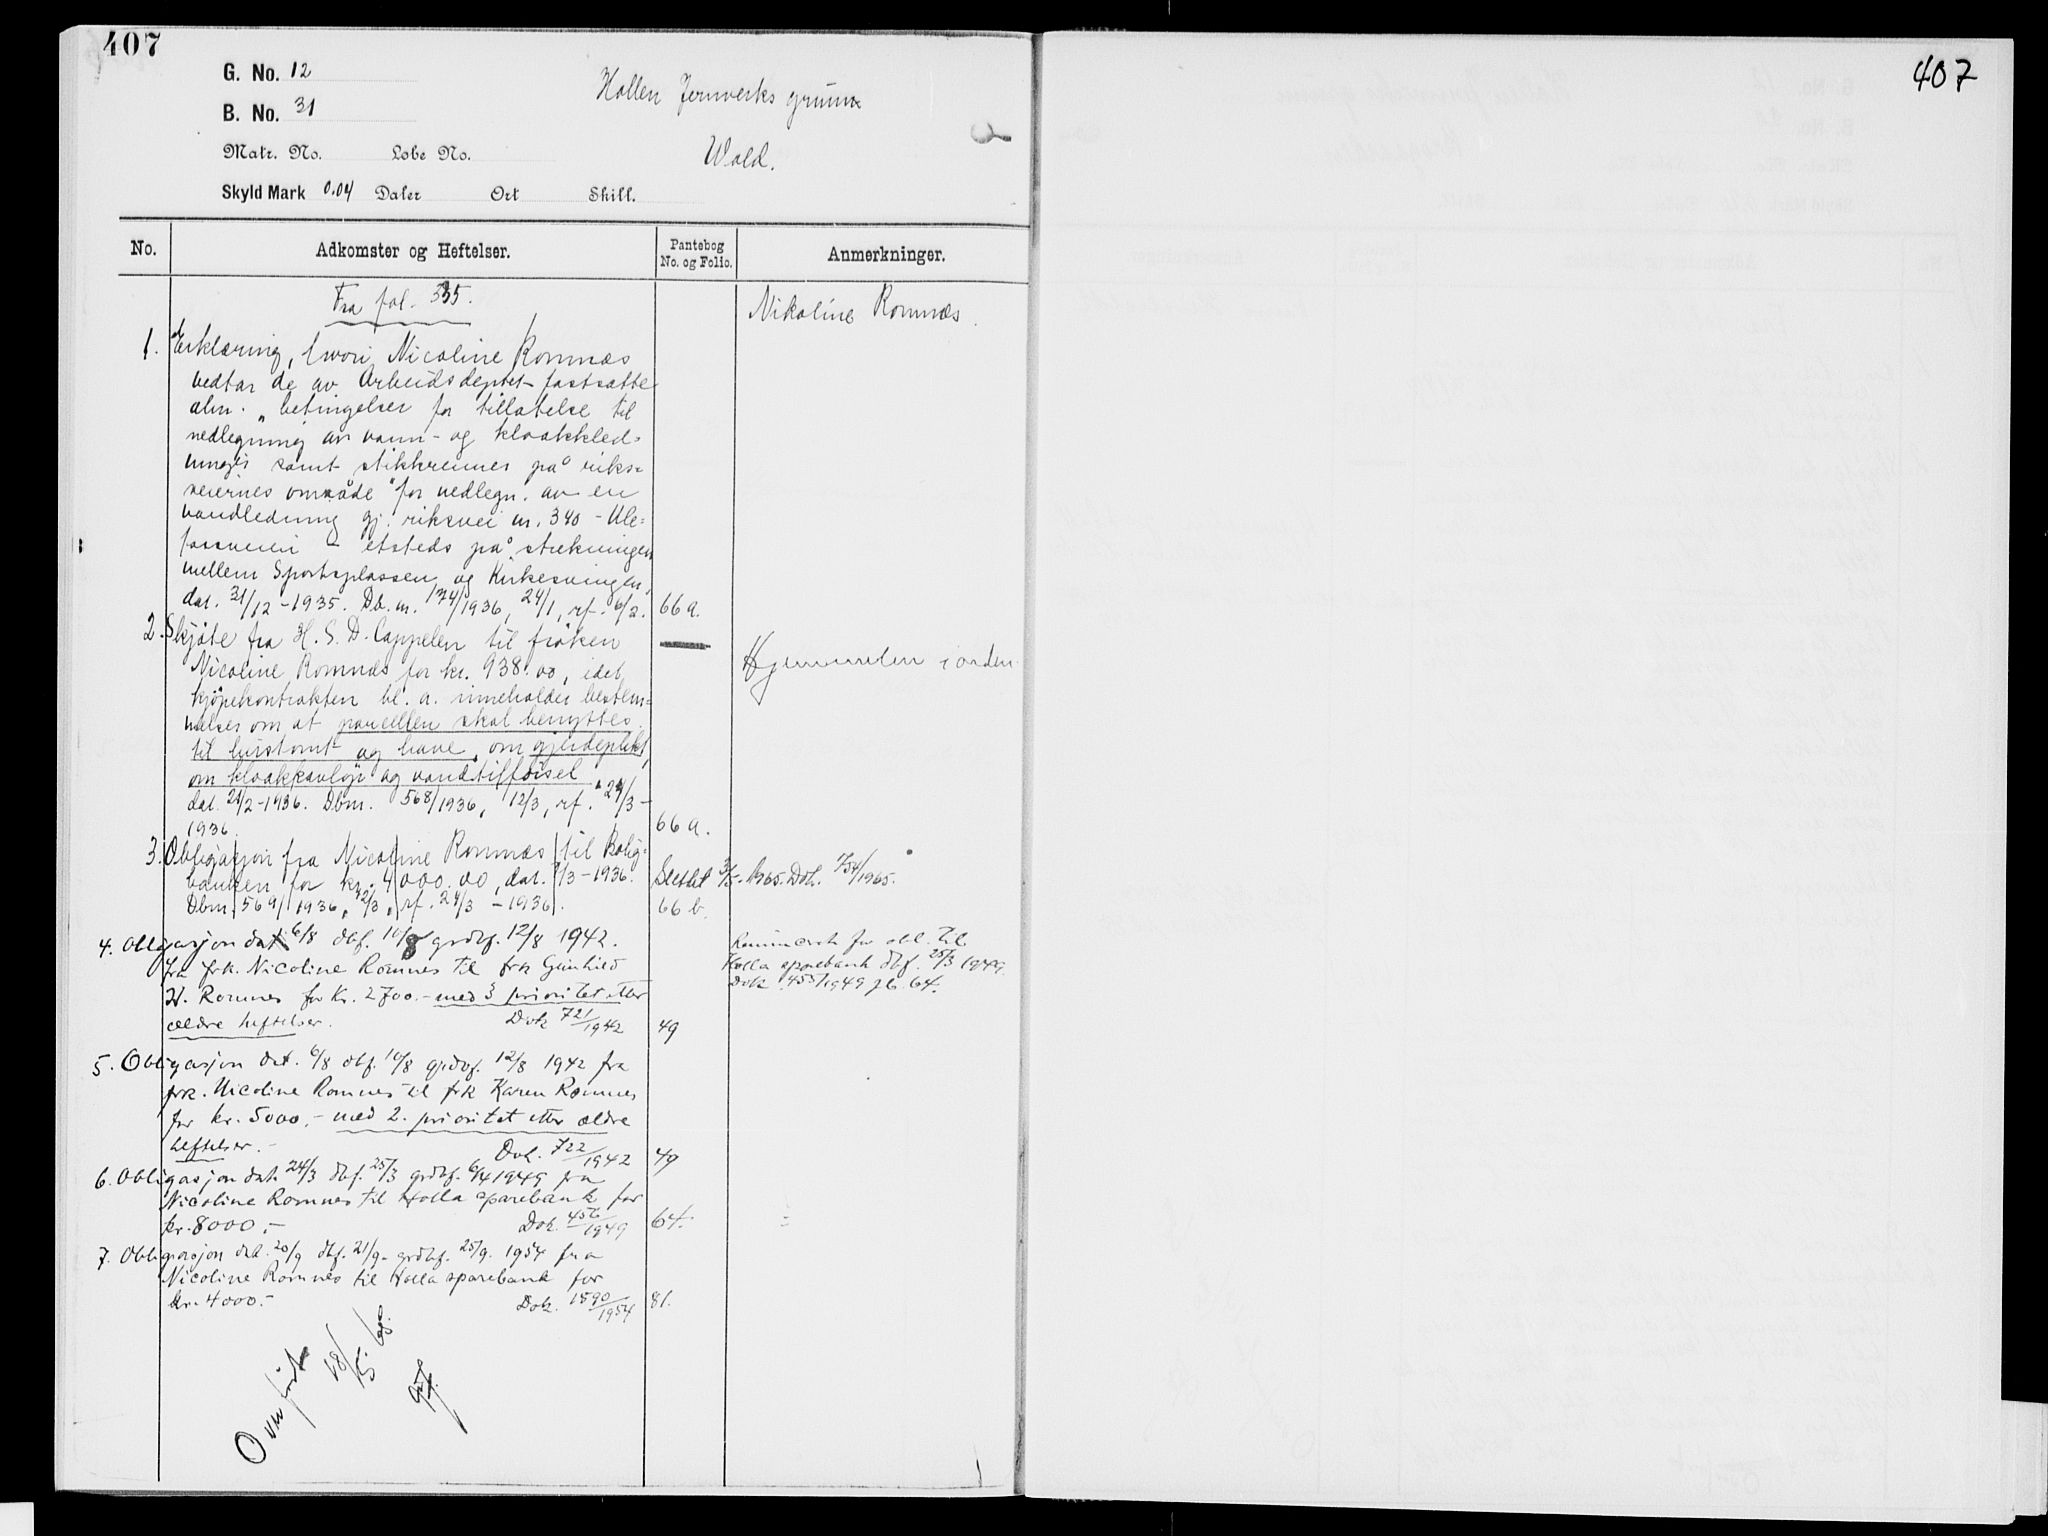 407
407
G. No. 12
B. No. 31
Hollen Jernverks grunn
Wold.
Matr. No. Løbe No.
Skyld Mark 0.04 Daler Ort Skill.
No. Adkomster og Heftelser. Pantebog No. og Folio. Anmerkninger.
Fra fol. 335.
Nikoline Romnæs.
1. Erklæring, hvori Nicoline Romnæs
vedtar de av Arbeidsdeptet fastsatte
alm. „betingelser for tillatelse til
nedlegning av vann- og kloakkled-
ninger samt stikkrenner på riks-
veiernes område" for nedlegn. av en
vandledning gj. riksvei nr. 340 - Ule-
fossveien - etsteds på strekningen
mellem Sportsplassen og Kirkesvingen,
dat. 31/12 - 1935. Db.nr. 174/1936, 24/1, rf. 6/2. 66a.
2. Skjöte fra H. S. D. Cappelen til fröken
Nicoline Romnæs for kr. 938.00, idet
Hjemmelen i orden.
kjöpekontrakten bl. a. inneholder bestem-
melser om at parcellen skal benyttes
til hustomt og have, om gjerdeplikt,
om kloakkavlöp og vandtilförsel
dat. 29/2-1936. Dbnr. 568/1936, 12/3, rf. 24/3 -
1936. 66a.
3. Obligasjon fra Nicoline Romnæs til Bolig-
banken for kr. 4000.00, dat. /3 - 1936. Slettet 3/5. 1965. Dok. 754/1965.
Dbnr. 569/1936, 12/3, rf. 24/3 - 1936. 66b.
4. Obligasjon dat. 6/8 dbf. 10/8 grdbf. 12/8 1942.
fra frk. Nicoline Romnes til frk Gunhild
W. Romnes for kr. 2700.- med 3 prioritet etter
ældre heftelser. Dok 721/1942 49
for obl. til
Holla sparebank dbf. 25/3 1949
Dok 455/1949 pb. 64.
5. Obligasjon dat. 6/8 dbf. 10/8 grdbf. 12/8 1942 fra
frk. Nicoline Romnes til frk Karen Romnes
for kr. 5000,- med 2. prioritet etter ældre
heftelser.- Dok. 722/1942 49
6. Obligasjon dat. 24/3 dbf. 25/3 grdbf. 6/4 1949 fra
Nicoline Romnes til Holla sparebank for
kr. 8000.- Dok. 456/1949 64.
7. Obligasjon dat. 20/9 dbf. 21/9- grdbf. 25/9. 1954 fra
Nicoline Romnes til Holla sparebank for
kr. 4000.- Dok. 1590/1954 81.
Overført
18/5 65.